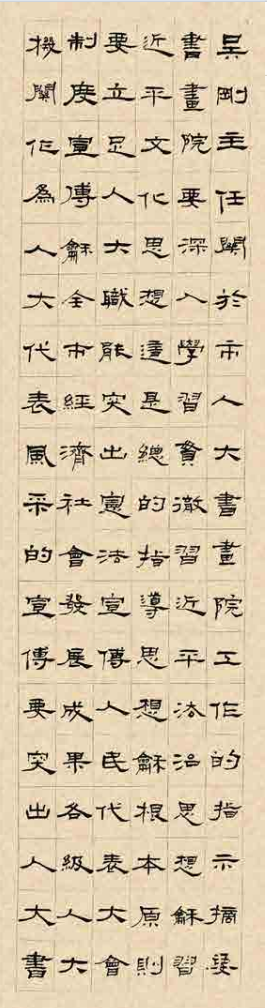 吴剛主任關於市人大書畫院工作的指示摘要
書畫院要深入學習貫徹習近平法治思想龢習
近平文化思想這是總的指導思想龢根本原則
要立足人大職能突出憲法宣傳人民代表大會
制度宣傳龢全市經濟社會發展成果各級人大
機關作為人大代表風采的宣傳要突出人大書